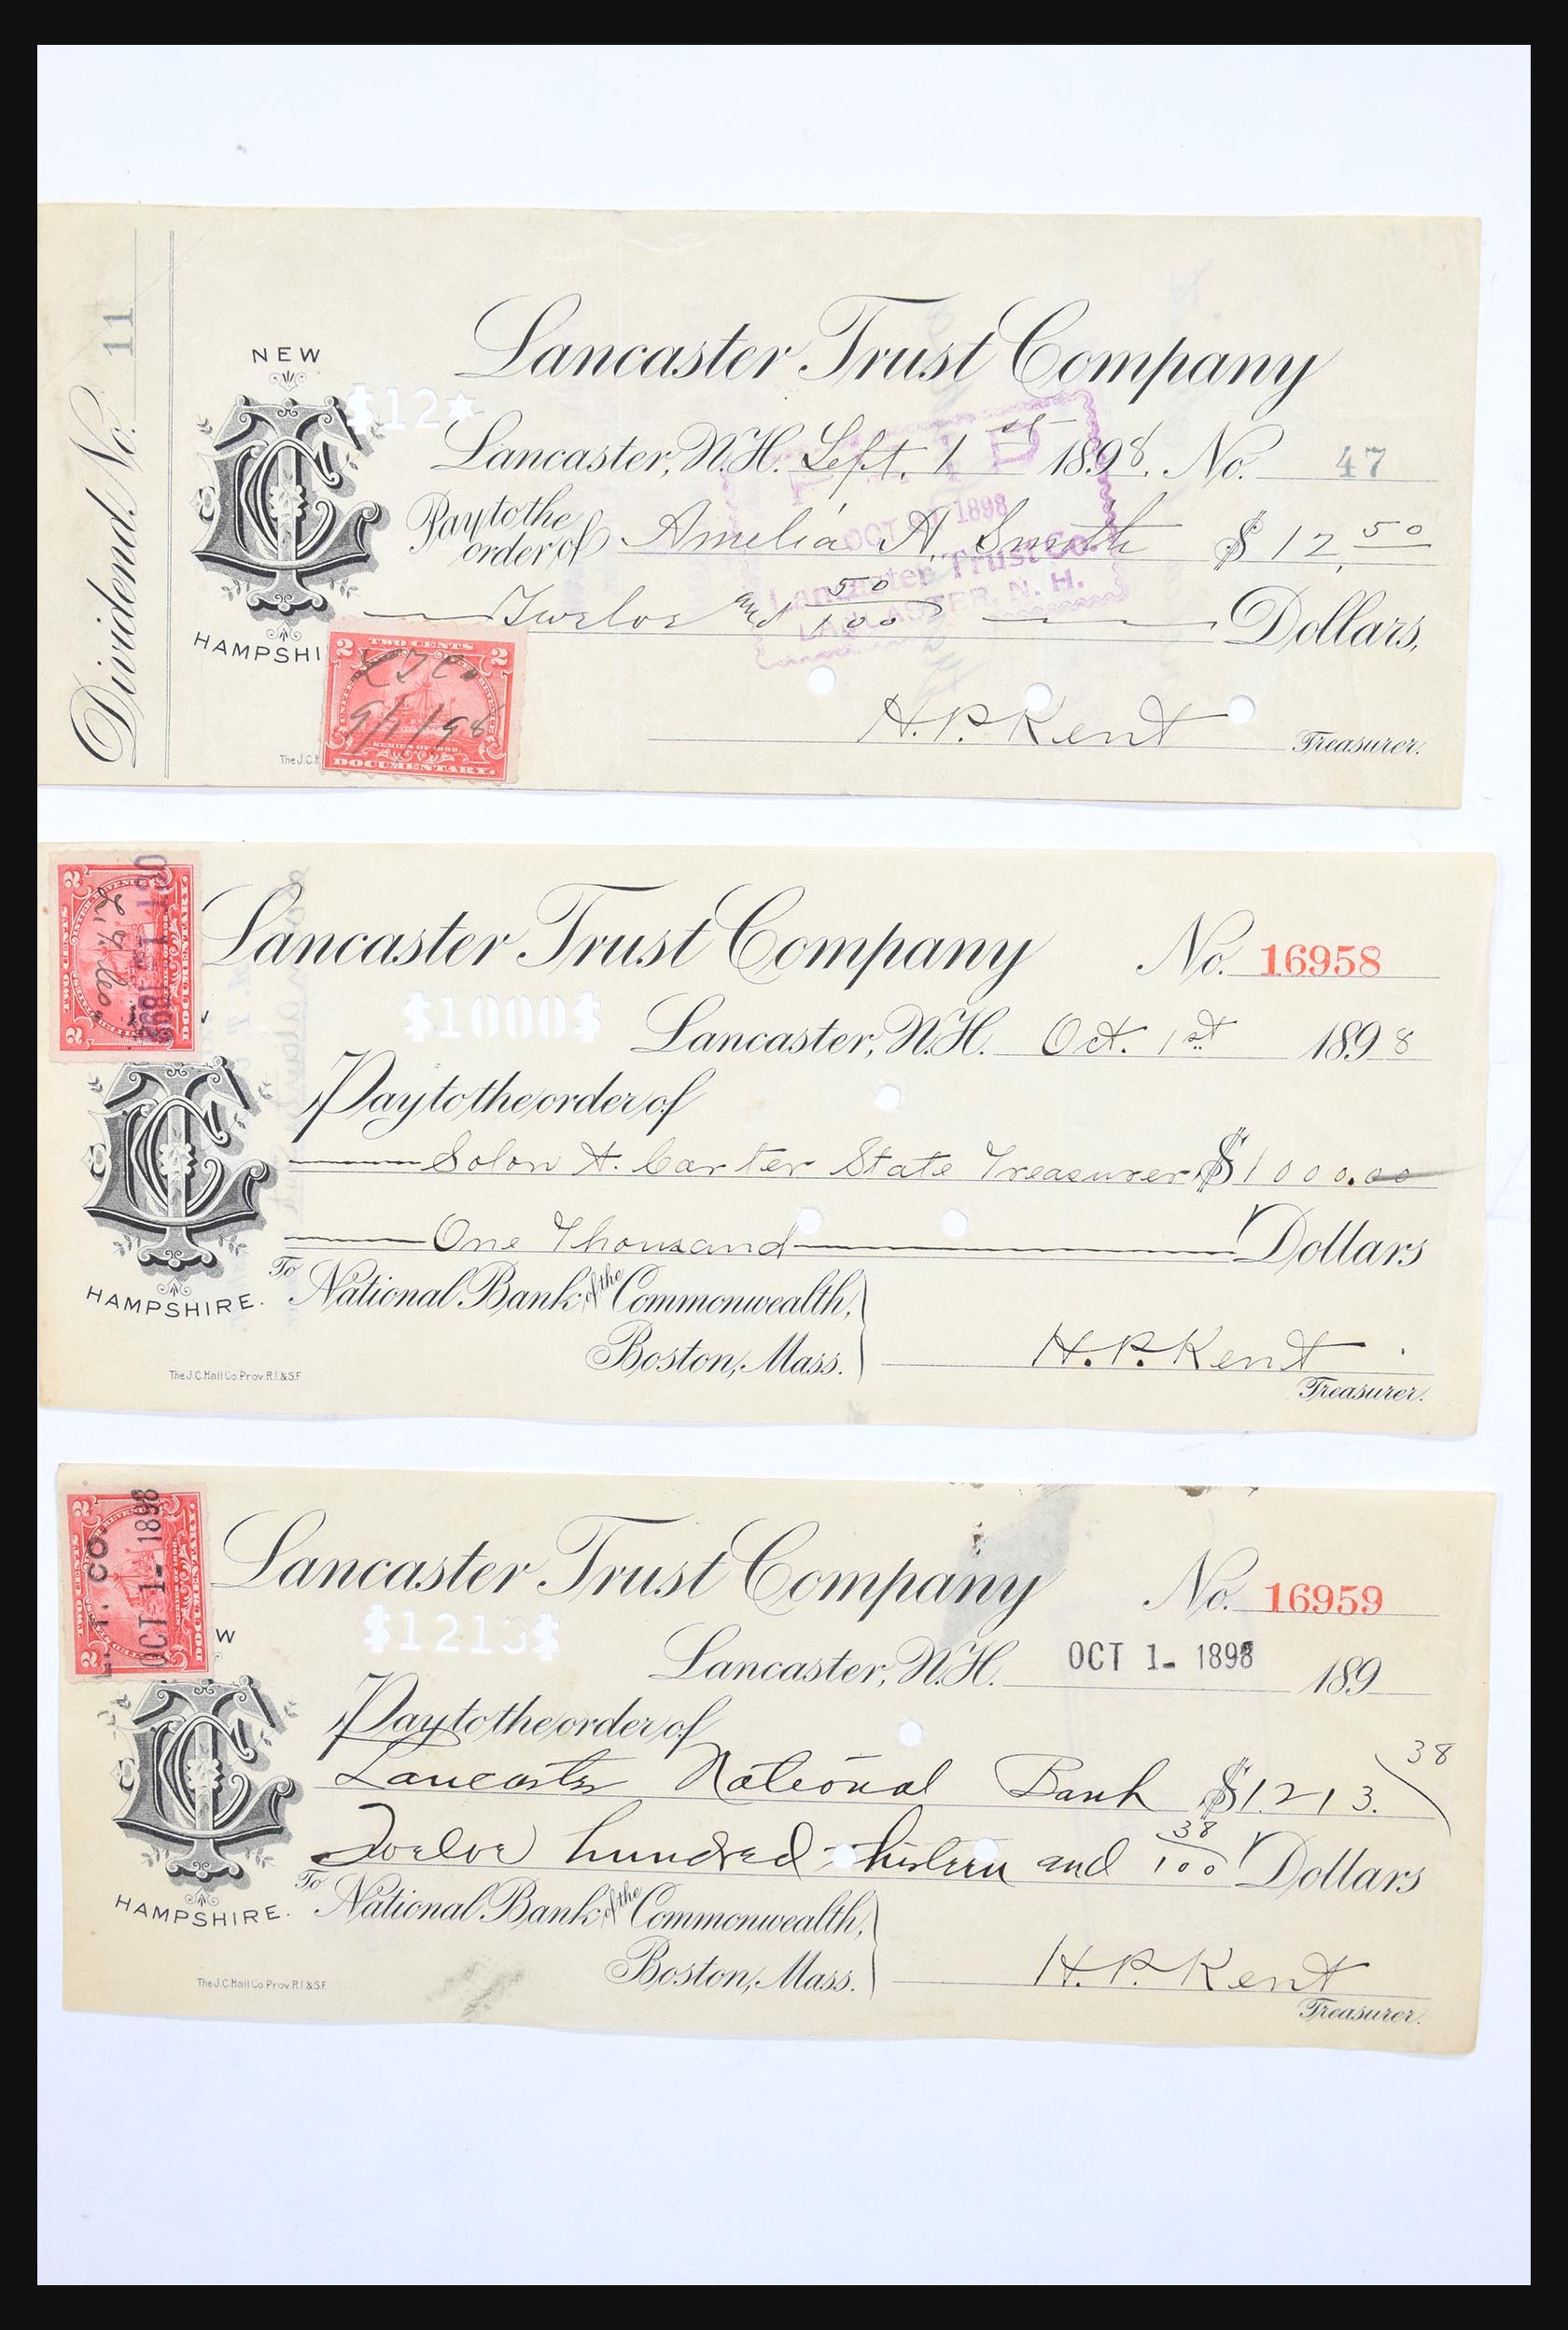 Dividend No. 11
NEW
HAMPSHI
$12★
Lancaster Trust Company
Lancaster, N.H. Sept. 1st 1898. No. 47
OCT 1898
Lancaster Trust Co.
LANCASTER, N. H.
Pay to the order of Amelia A. Smith $12.50
Twelve and 50/100 Dollars,
2 TWO CENTS 2
L T Co.
9/1/98
SERIES OF 1898.
DOCUMENTARY.
H.P. Kent Treasurer.
The J.C.H
2 TWO CENTS 2
DOCUMENTARY.
L. T. Co.
OCT 1 - 1898
Lancaster Trust Company No. 16958
$1000$
Lancaster, N.H. Oct. 1st 1898
Pay to the order of
Solon A. Carter State Treasurer $1000.00
One Thousand Dollars
To National Bank of the Commonwealth,
Boston, Mass.
HAMPSHIRE.
H.P. Kent
Treasurer.
The J.C. Hall Co. Prov. R.I. & S.F.
2 TWO CENTS 2
DOCUMENTARY.
T. CO.
OCT 1- 1898
W
Lancaster Trust Company No. 16959
$1213$
Lancaster, N.H. OCT 1- 1898 189
Pay to the order of
Lancaster National Bank $1213.38
Twelve hundred thirteen and 38/100 Dollars
To National Bank of the Commonwealth,
Boston, Mass.
HAMPSHIRE.
H.P. Kent
Treasurer.
The J.C. Hall Co. Prov. R.I. & S.F.